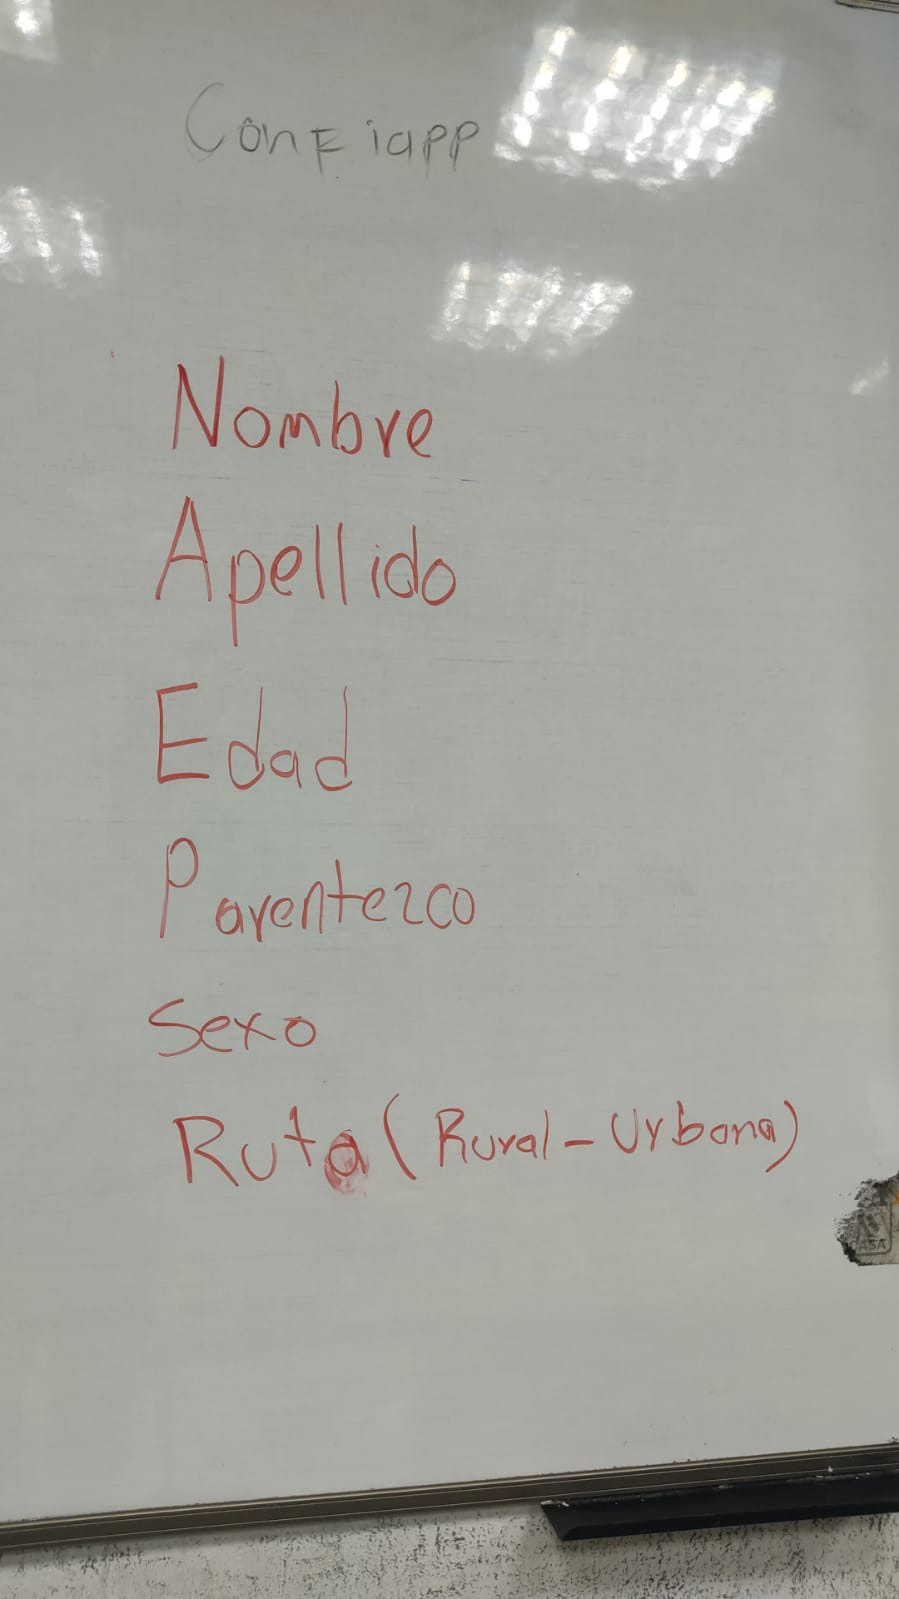 Confiapp
Nombre
Apellido
Edad
Parentezco
Sexo
Ruta (Rural - Urbana)
CASA